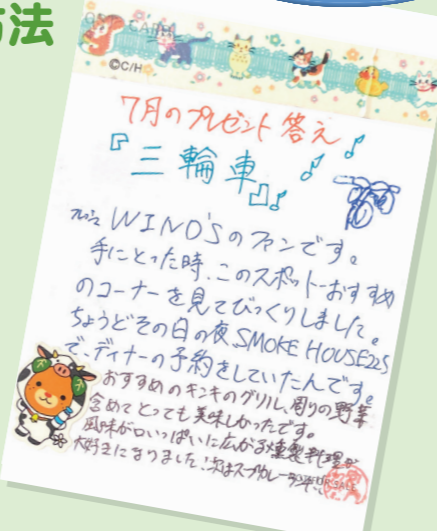 方法
©C/H
7月のプレゼント答え
『三輪車』
フレッシュ WIND'Sのファンです。
手にとった時、このスポットおすすめ
のコーナーを見てびっくりしました。
ちょうどその日の夜、SMOKE HOUSE225
で、ディナーの予約をしていたんです。
おすすめのキンキのグリル、周りの野菜
含めてとっても美味しかったです。
風味が口いっぱいに広がる燻製料理が
大好きになりました！次はスープカレーランチに